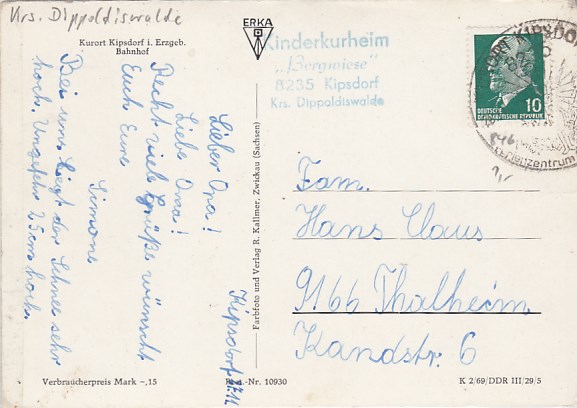 Krs. Dippoldiswalde
Kurort Kipsdorf i. Erzgeb.
Bahnhof
ERKA
Kinderkurheim
„Bergwiese"
8235 Kipsdorf
Krs. Dippoldiswalde
DEUTSCHE
DEMOKRATISCHE REPUBLIK
10
KIPSDORF
846
1,-
Kipsdorf
Lieber Opa!
Liebe Oma!
Recht viel Grüße wünscht
Euch Eure
Simone
Bei uns liegt der Schnee sehr
hoch. Ungefähr 25cm hoch.
Farbfoto und Verlag R. Kallmer, Zwickau (Sachsen)
Fam.
Hans Claus
9166 Thalheim
Kandstr. 6
Verbraucherpreis Mark -,15
Best.-Nr. 10930
K 2/69/DDR III/29/5